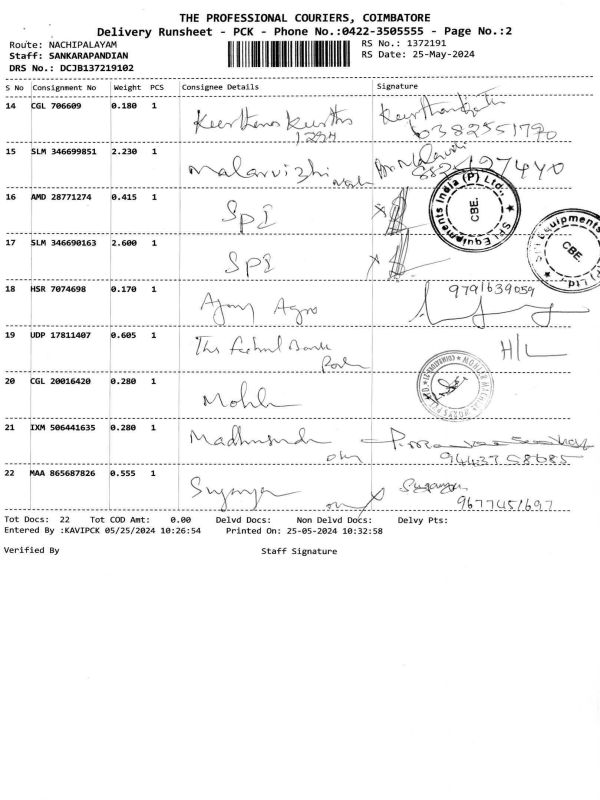 THE PROFESSIONAL COURIERS, COIMBATORE
Delivery Runsheet - PCK - Phone No.:0422-3505555 - Page No.:2
Route: NACHIPALAYAM RS No.: 1372191
Staff: SANKARAPANDIAN RS Date: 25-May-2024
DRS No.: DCJB137219102
S No Consignment No Weight PCS Consignee Details Signature
14 CGL 706609 0.180 1
15 SLM 346699851 2.230 1 Malarvizhi
16 AMD 28771274 0.415 1 SPI
SPI Equipments India (P) Ltd., CBE.
17 SLM 346690163 2.600 1 SPI
18 HSR 7074698 0.170 1 Ajay Agro 9791639059
19 UDP 17811407 0.605 1 The Federal Bank H/L
20 CGL 20016420 0.280 1
21 IXM 506441635 0.280 1
22 MAA 865687826 0.555 1 Suganya
9677451697
Tot Docs: 22 Tot COD Amt: 0.00 Delvd Docs: Non Delvd Docs: Delvy Pts:
Entered By :KAVIPCK 05/25/2024 10:26:54 Printed On: 25-05-2024 10:32:58
Verified By Staff Signature